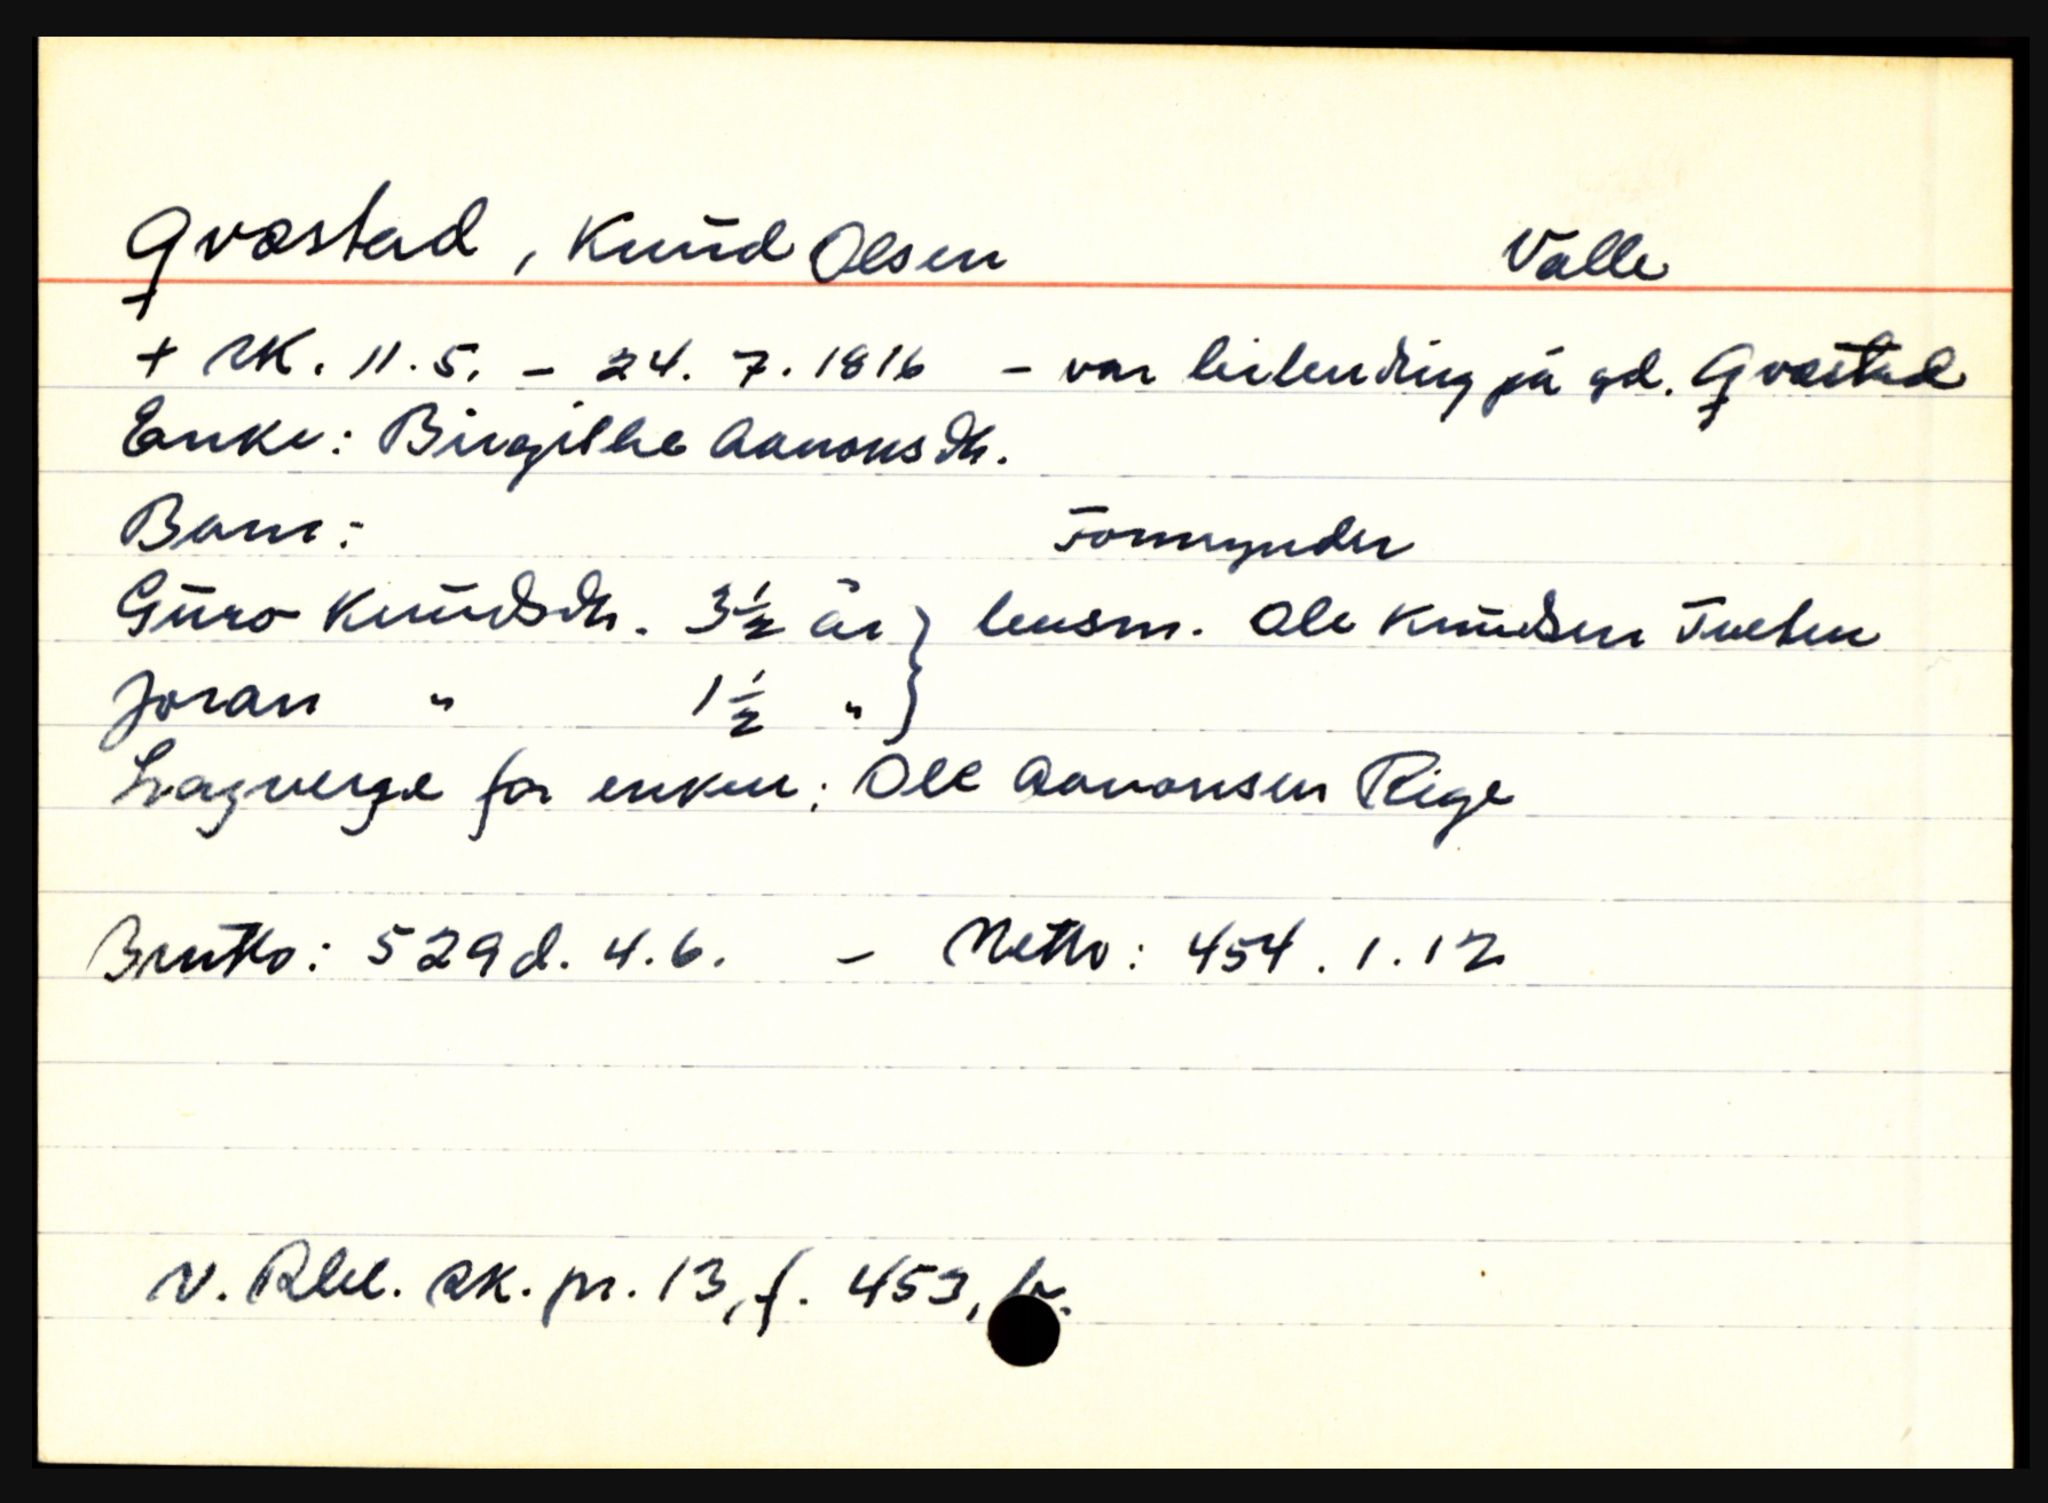 Qvæstad, Knud Olsen Valle
+ SK. 11.5. - 24.7.1816 - var leilending på gd. Qvæstad
Enke: Birgithe Aanonsdtr.
Barn: Formynder
Guro Knudsdtr. 3½ år } lensm. Ole Knudsen Tveten
Joran " 1½ " }
Lagverge for enken: Ole Aanonsen Rige
Brutto: 529 d. 4.6. - Netto: 454.1.12
N. Rbl. SK. pr. 13, f. 453, b.